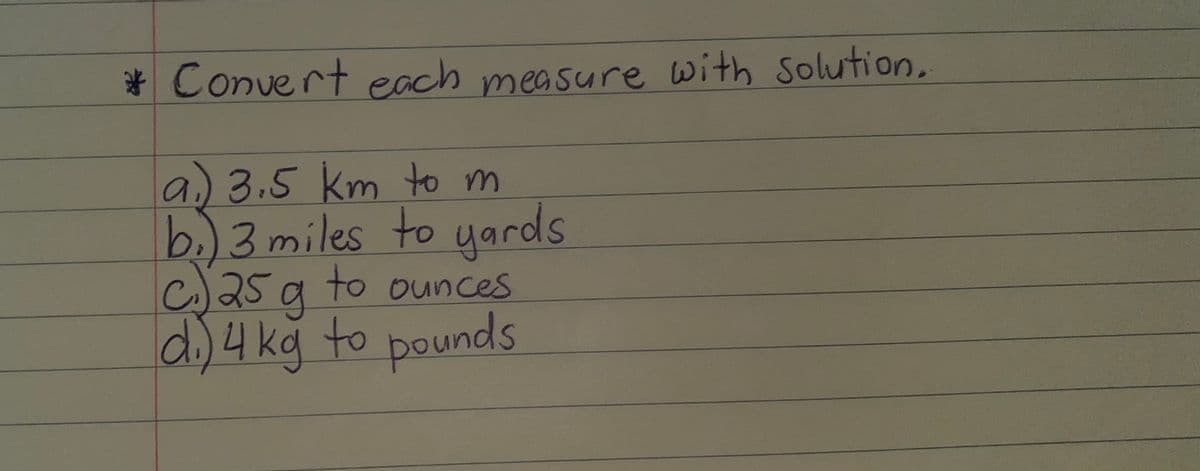 * Convert each measure with solution.
a.) 3.5 km to m
b.) 3 miles to yards
c.) 25 g to ounces
d.) 4 kg to pounds